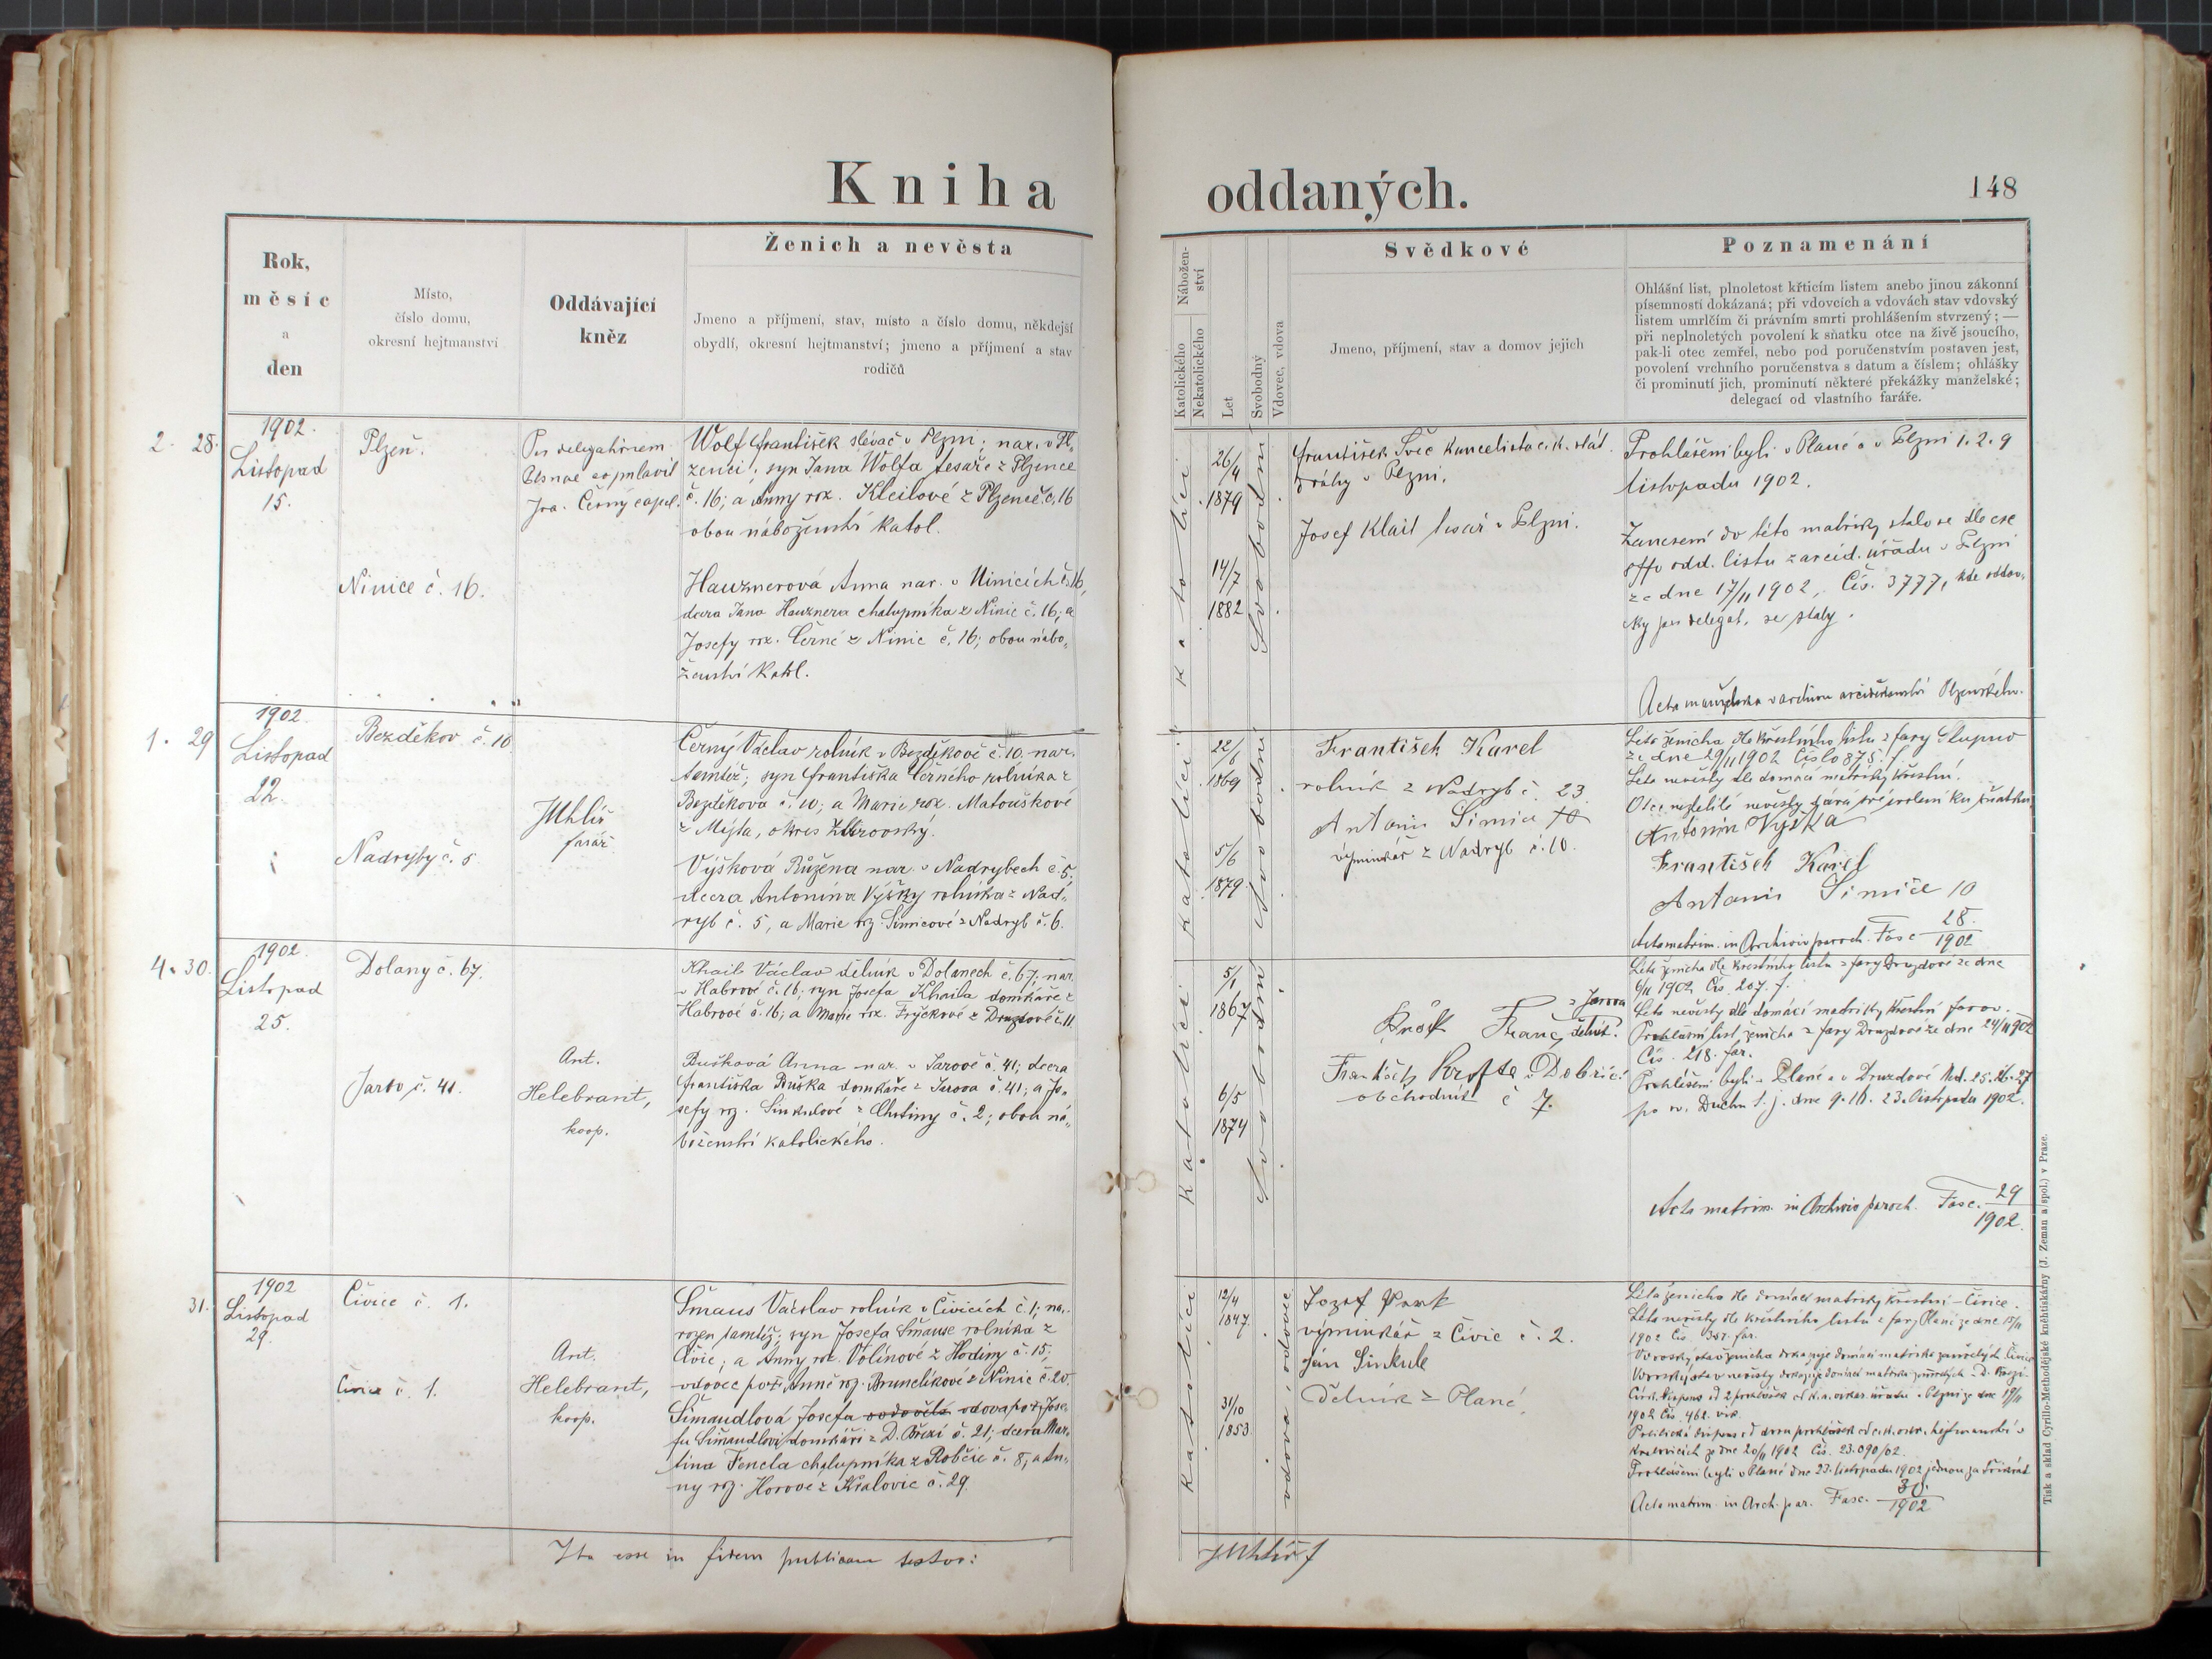 Kniha
oddaných.
148
Rok,
měsíc
a
den
Místo,
číslo domu,
okresní hejtmanství
Oddávající
kněz
Ženich a nevěsta
Jmeno a příjmení, stav, místo a číslo domu, někdejší
obydlí, okresní hejtmanství; jmeno a příjmení a stav
rodičů
Nábožen-
ství
Katolického
Nekatolického
Let
Svobodný
Vdovec, vdova
Svědkové
Jmeno, příjmení, stav a domov jejich
Poznamenání
Ohlášní list, plnoletost křticím listem anebo jinou zákonní
písemností dokázaná; při vdovcích a vdovách stav vdovský
listem umrlčím či právním smrti prohlášením stvrzený; —
při neplnoletých povolení k sňatku otce na živě jsoucího,
pak-li otec zemřel, nebo pod poručenstvím postaven jest,
povolení vrchního poručenstva s datum a číslem; ohlášky
či prominutí jich, prominutí některé překážky manželské;
delegací od vlastního faráře.
2. 28.
1902.
Listopad
15.
Plzeň.
Ninice č. 16.
Per delegationem
Jos. Černý capel.
Wolf František slévač v Plzni; nar. v Pl-
zenci, syn Jana Wolfa tesaře z Plzence
č. 16; a Anny roz. Kleilové z Plzence č. 16
obou náboženství katol.
Hauznerová Anna nar. v Ninicích č. 16,
dcera Jana Hauznera chalupníka z Ninic č. 16; a
Josefy roz. Černé z Ninic č. 16; obou nábo-
ženství katol.
katolíci
26/4
1879
14/7
1882
Svobodní
František Švec kancelista c. k. stát.
dráhy v Plzni.
Josef Klail tesař v Plzni.
Prohlášeni byli v Plané a v Plzni 1. 2. 9
listopadu 1902.
Zanesení do této matriky stalo se dle exc
offo odd. listu z arcid. úřadu v Plzni
ze dne 17/11 1902, Čís. 3777, kde oddav-
ky per delegat. se staly.
1. 29
1902.
Listopad
22.
Bezděkov č. 10
Nadryby č. 5
JUhlíř
farář
Černý Václav rolník v Bezděkově č. 10. nar.
tamtéž; syn Františka Černého rolníka z
Bezděkova č. 10; a Marie roz. Matouškové
z Mýta, okres
Výšková Růžena nar. v Nadrybech č. 5.
dcera Antonína Výšky rolníka z Nad-
ryb č. 5, a Marie roz. Šimicové z Nadryb č. 6.
katolíci
22/6
1869
5/6
1879
Svobodní
František Karel
rolník z Nadryb č. 23
Antonin Šimice 10
výminkář z Nadryb č. 10.
Léta ženicha dle křestního listu z fary
ze dne 29/11 1902 Číslo 875. f.
Léta nevěsty dle domácí matriky křestní.
Otec nezletilé nevěsty dává své svolení ku sňatku
Antonín Výška
František Karel
Antonin Šimice 10
Acta matrim. in Archivio paroch. Fasc 28.
1902
4. 30.
1902.
Listopad
25.
Dolany č. 67.
Jarov č. 41.
Ant.
Helebrant,
koop.
Khail Václav dělník v Dolanech č. 67; nar.
v Habrové č. 16; syn Josefa Khaila domkáře z
Habrové č. 16; a Marie roz. Frýčkové z Druzdové č. 11
Bušková Anna nar. v Jarově č. 41; dcera
Františka Buška domkáře z Jarova č. 41; a Jo-
sefy roz. Sinkulové z Chotiny č. 2; obou ná-
boženství katolického.
katolíci
5/1
1867
6/5
1874
Svobodní
z Jarova
dělník.
František Krofta
obchodník č 7.
Léta ženicha dle křestního listu z fary Druzdové ze dne
6/11 1902 Čís. 207. f.
Léta nevěsty dle domácí matriky křestní Jarov.
Prohlášní list ženicha z fary Druzdové ze dne 24/11 1902
Čís. 218. far.
Prohlášeni byli v Plané a v Druzdové Ned. 25. 26. 27
po sv. Duchu t. j. dne 9. 16. 23. listopadu 1902.
Acta matrim. in Archivio paroch. Fasc. 29
1902.
31.
1902
Listopad
29.
Čivice č. 1.
Čivice č. 1.
Ant.
Helebrant,
koop.
Šmaus Václav rolník v Čivicích č. 1; na-
rozen tamtéž; syn Josefa Šmause rolníka z
Čivic; a Anny roz. Volínové z Hodiny č. 15;
vdovec po † Anně roz. Brunclíkové z Ninic č. 20.
Šimandlová Josefa vdova po † Jose-
fu Šimandlovi domkáři z D. Březí č. 21; dcera Mar-
tina Fencla chalupníka z Robčic č. 8; a An-
ny roz. Horové z Kralovic č. 29.
Katolíci
12/4
1847.
31/10
1853
vdova, vdovec
Jozef
výminkář z Čivic č. 2.
Jan Sinkule
dělník z Plané.
Léta ženicha dle domácí matriky křestní – Čivice.
Léta nevěsty dle křestního listu z fary Plané ze dne
Kralovicích ze dne 20/11 1902 Čís. 23.090/02.
Prohlášeni byli v Plané dne 23. listopadu 1902 jednou za třikrát
Acta matrim. in Arch. par. Fasc. 30.
1902
Ita esse in fidem publicam testor:
JUhlíř f
Tisk a sklad Cyrillo-Methodějské knihtiskárny (J. Zeman a spol.) v Praze.